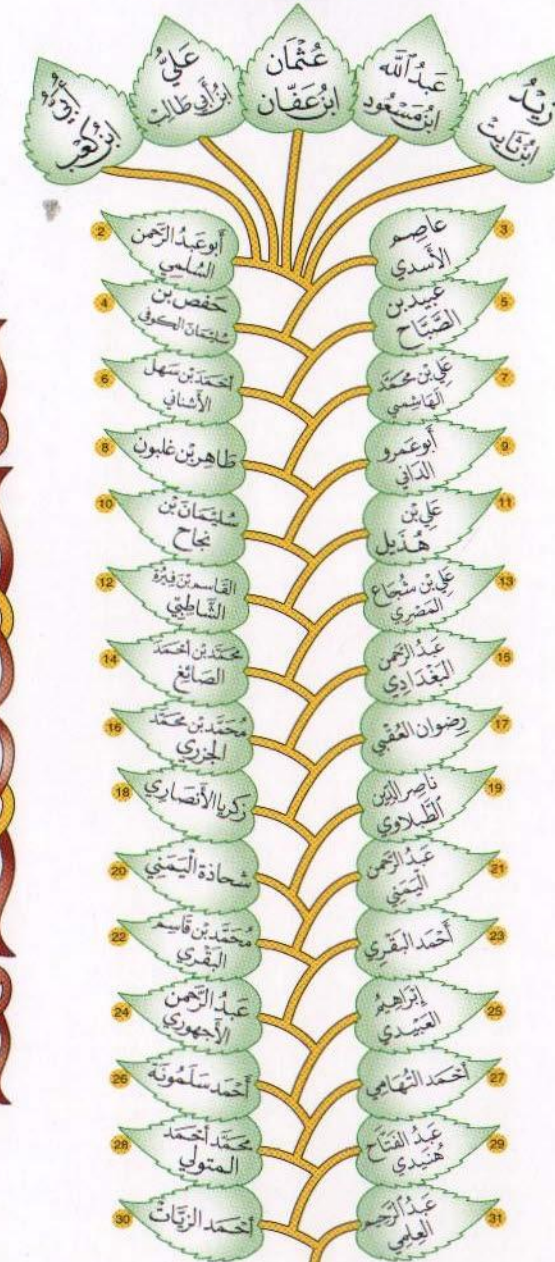 زَيْدُ
ابْنُ ثَابِت
عَبْدُ اللَّه
ابْنُ مَسْعُود
عُثْمَان
ابْنُ عَفَّان
عَلِيُّ
ابْنُ أَبِي طَالِبْ
أُبَيُّ ابْنُ
كَعْبْ
2
أبو عَبدُ الرَّحمن
السُّلَمي
3
عاصِم
الأَسَدي
4
حَفص بن
سُلَيْمَان الكوفي
5
عبيد بن
الصَّبَّاح
6
أحمَد بن سَهل
الأشناني
7
عَلي بن محُمَّد
الهَاشِمي
8
طاهِر بن غلبون
9
أبو عَمرو
الدَاني
10
سُليْمَان بْن
نجَاح
11
عَلي بْن
هُذَيل
12
القَاسِم بْن فِيرُّة
الشَّاطِبيّ
13
عَلي بْن شُجَاع
المَصْري
14
محَمَّد بن أحْمَد
الصَائِغ
15
عَبدُ الرَّحمن
البَغْدَادي
16
مُحَمَّد بن مُحَمَّد
الجَزري
17
رضوان العُقْبي
18
زَكريا الأنصَاري
19
ناصِر الدِّين
الطَّبلاوي
20
شحاذة الْيَمَني
21
عَبدُ الرَّحمن
الْيَمَني
22
مُحَمَّد بن قَاسِم
البَقْري
23
أحْمَد البَقَري
24
عَبدُ الرَّحمن
الأَجهُوري
25
إبْرَاهِيْم
العَبيْدي
26
أحْمَد سَلَمُونَة
27
أحْمَد التُهَامِي
28
محَمَّد أحْمَد
المتَولي
29
عَبدُ الفَتَّاح
هُنَيْدي
30
أحْمَد الزيَّاتْ
31
عَبدُ الرَّحيم
العِلمي